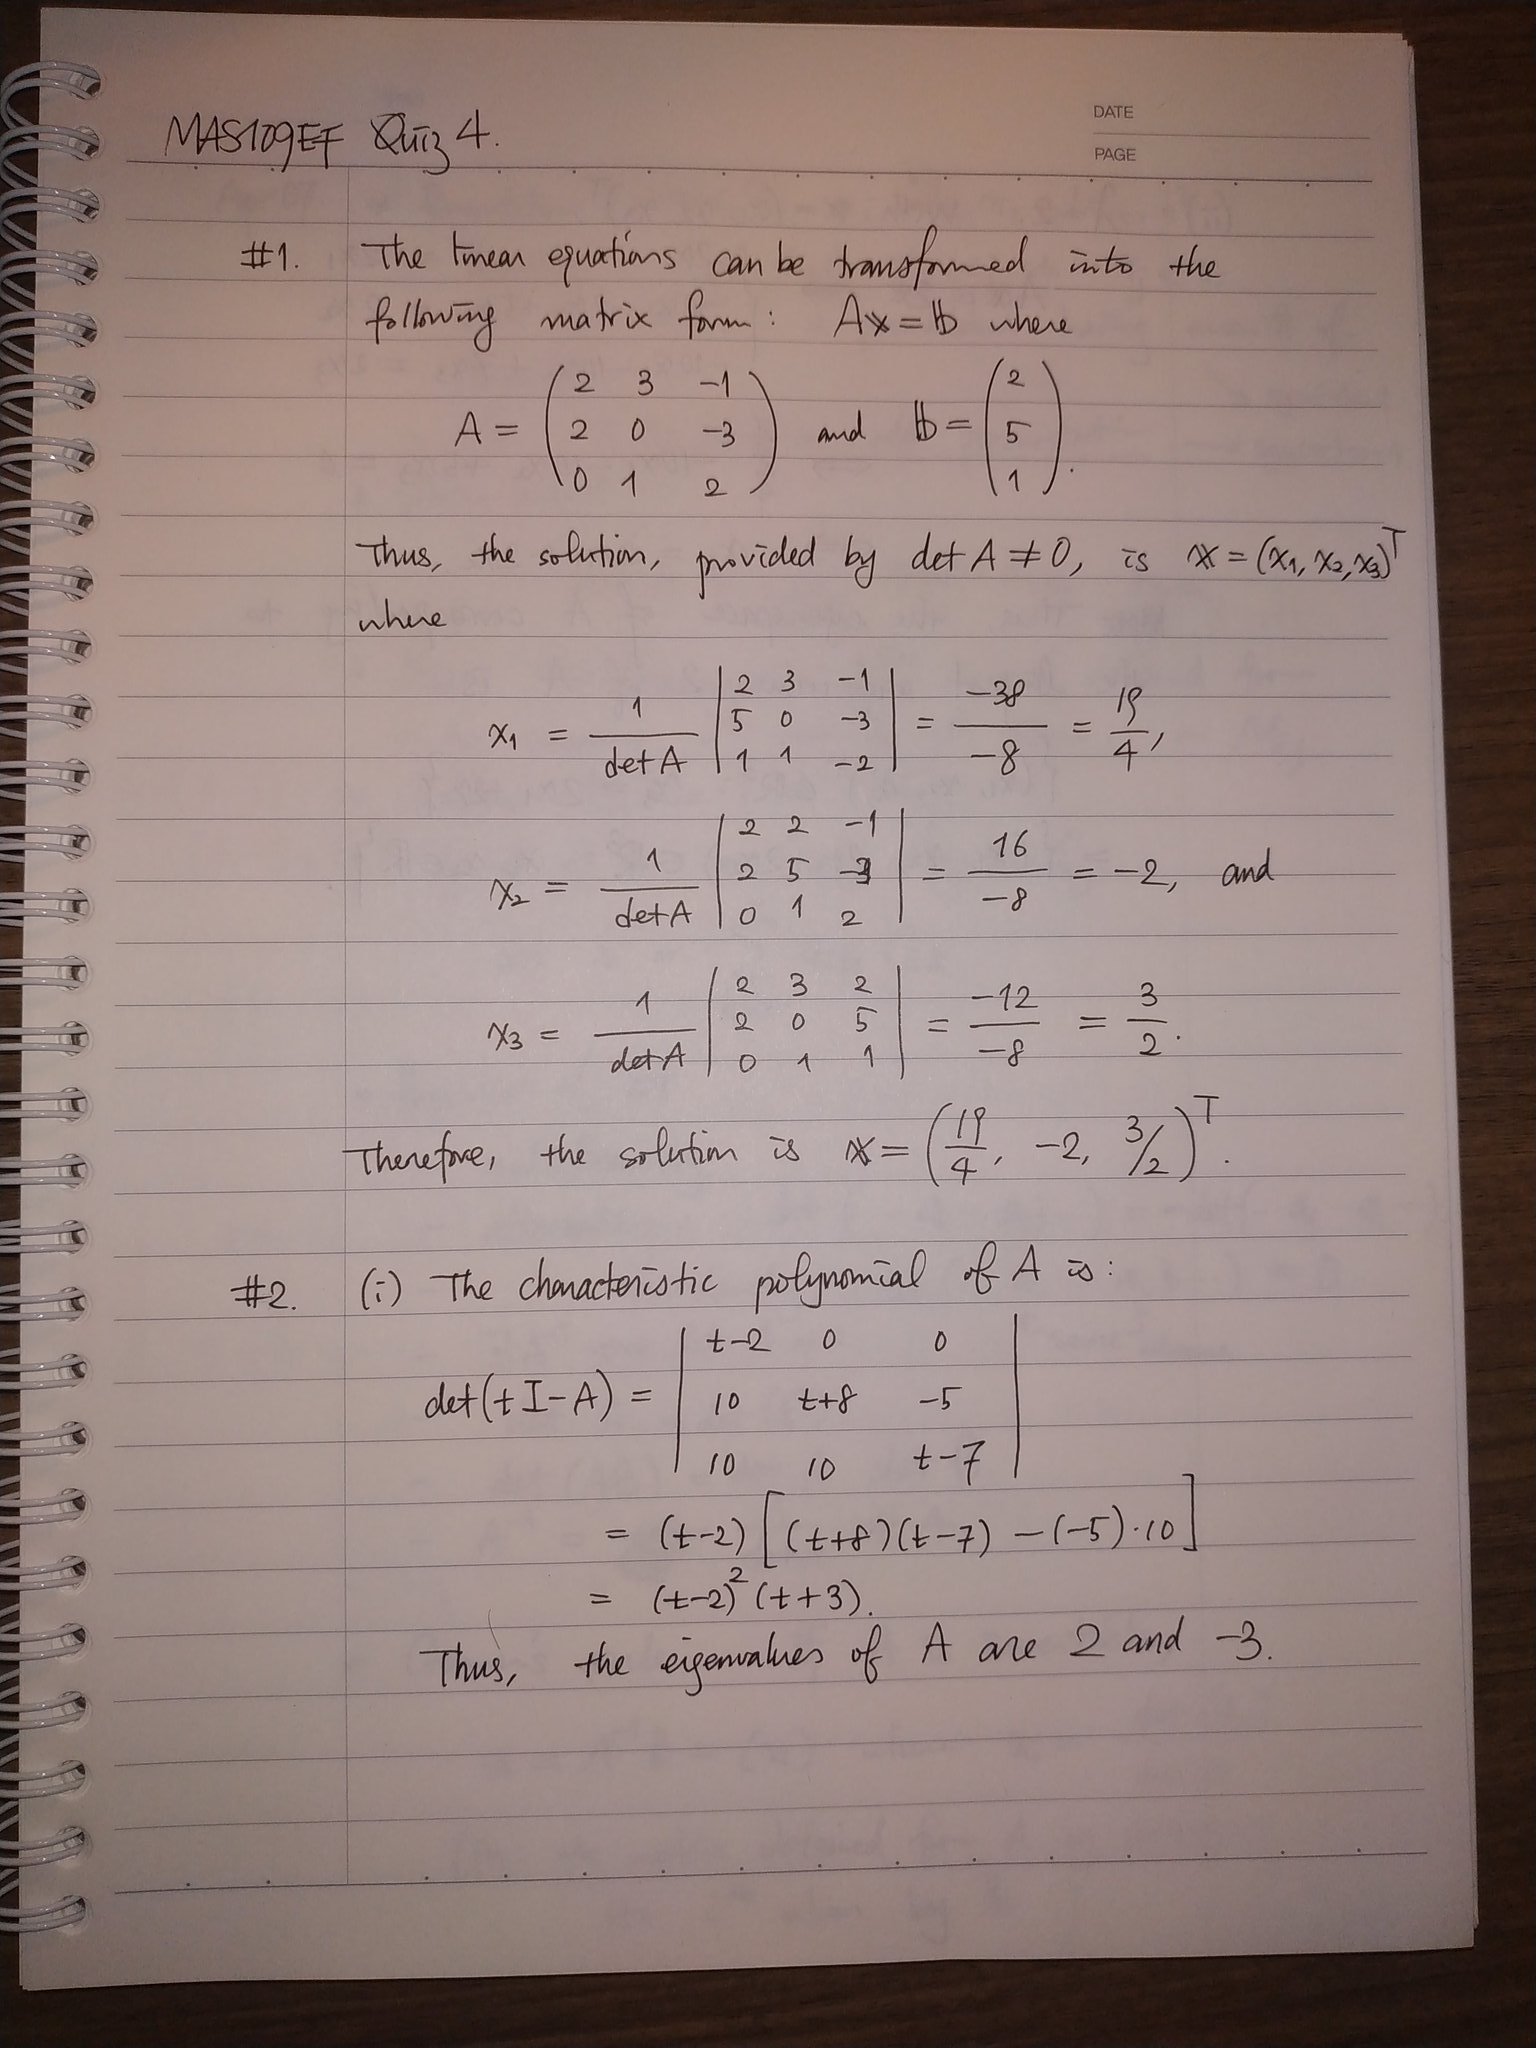 MAS109EF Quiz 4.
DATE
PAGE
#1. The linear equations can be transformed into the
following matrix form: Ax = b where
A = ( 2 3 -1
2 0 -3
0 1 2 ) and b = ( 2
5
1 ).
Thus, the solution, provided by det A ≠ 0, is x = (x₁, x₂, x₃)ᵀ
where
x₁ = 1/det A | 2 3 -1
5 0 -3
1 1 -2 | = -38/-8 = 19/4,
x₂ = 1/det A | 2 2 -1
2 5 -3
0 1 2 | = 16/-8 = -2, and
x₃ = 1/det A | 2 3 2
2 0 5
0 1 1 | = -12/-8 = 3/2.
Therefore, the solution is x = (19/4, -2, 3/2)ᵀ.
#2. (i) The characteristic polynomial of A is:
det(tI-A) = | t-2 0 0
10 t+8 -5
10 10 t-7 |
= (t-2) [(t+8)(t-7) - (-5)·10]
= (t-2)² (t+3).
Thus, the eigenvalues of A are 2 and -3.